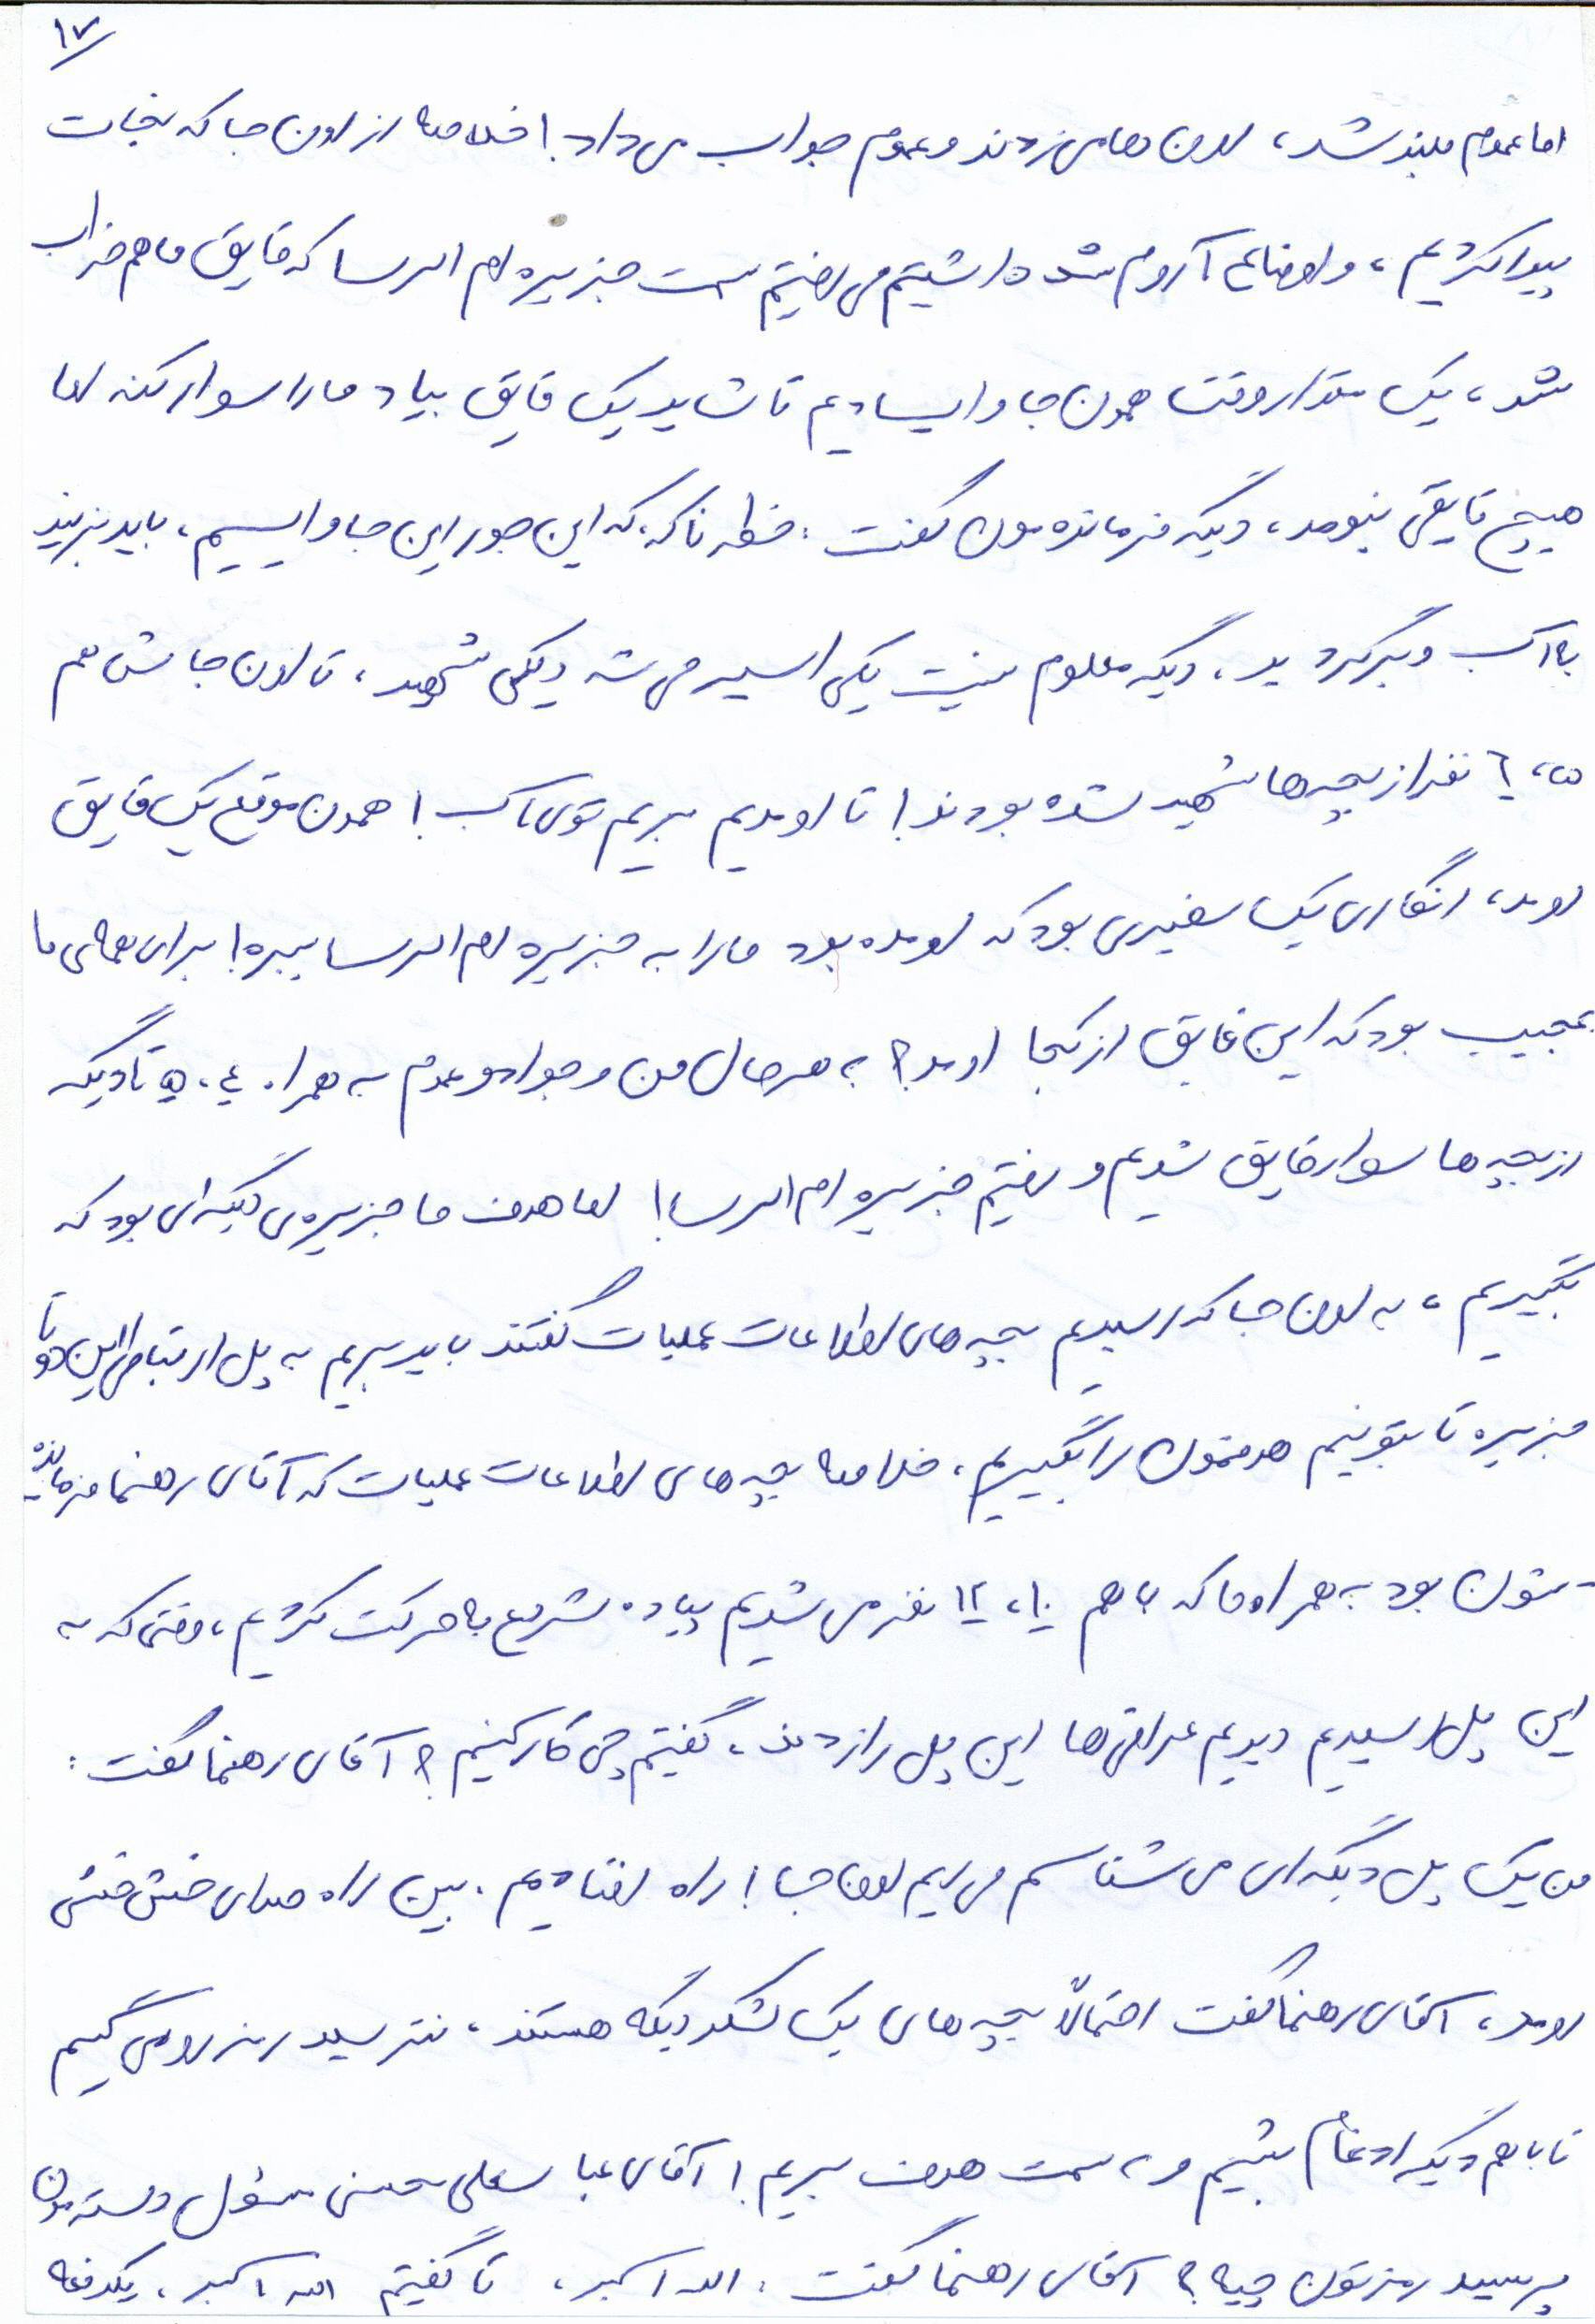 ۱۷
اما عموم بلند شد، اون ها می زدند و عموم جواب می داد! خلاصه از اون جا که نجات
پیدا کردیم، و اوضاع آروم شد داشتیم می رفتیم سمت جزیره ام الرسا که قایق ما هم خراب
شد، یک مقدار وقت همون جا وایسادیم تا شاید یک قایق بیاد ما را سوار کنه اما
هیچ قایقی نیومد، دیگه فرمانده مون گفت: خطرناکه، که این جور این جا وایسیم، باید بزنید
به آب و برگردید، دیگه معلوم نیست یکی اسیر می شه و یکی شهید، تا اون جاش هم
۵، ۶ نفر از بچه ها شهید شده بودند! تا اومدیم بریم توی آب! همون موقع یک قایق
اومد، انگاری یک سفیری بود که اومده بود ما را به جزیره ام الرسا ببره! برای همه ی ما
عجیب بود که این قایق از کجا اومد؟ به هر حال من و جواد و عموم به همراه ۴، ۵ تا دیگه
از بچه ها سوار قایق شدیم و رفتیم جزیره ام الرسا! اما هدف ما جزیره ی دیگه ای بود که
بگیریم، به اون جا که رسیدیم بچه های اطلاعات عملیات گفتند باید بریم به پل ارتباطی این دو تا
جزیره تا بتونیم هدفمون را بگیریم، خلاصه بچه های اطلاعات عملیات که آقای رهنما فرمانده
شون بود به همراه ما که با هم ۱۰، ۱۲ نفر می شدیم پیاده شروع به حرکت کردیم، وقتی که به
این پل رسیدیم دیدیم عراقی ها این پل را زدند، گفتیم چی کار کنیم؟ آقای رهنما گفت:
من یک پل دیگه ای می شناسم می ریم اون جا! راه افتادیم، بین راه صدای خش خش
اومد، آقای رهنما گفت احتمالاً بچه های یک لشکر دیگه هستند، نترسید رمز رو می گیم
تا با هم دیگه ادغام بشیم و به سمت هدف بریم! آقای عباسعلی محسنی مسئول دسته مون
پرسید رمزتون چیه؟ آقای رهنما گفت: الله اکبر، تا گفتیم الله اکبر، یکدفعه